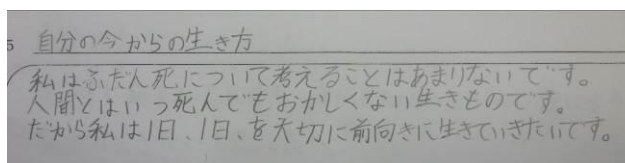 5 自分の今からの生き方
私はふだん死について考えることはあまりないです。
人間とはいつ死んでもおかしくない生きものです。
だから私は1日、1日、を大切に前向きに生きていきたいです。